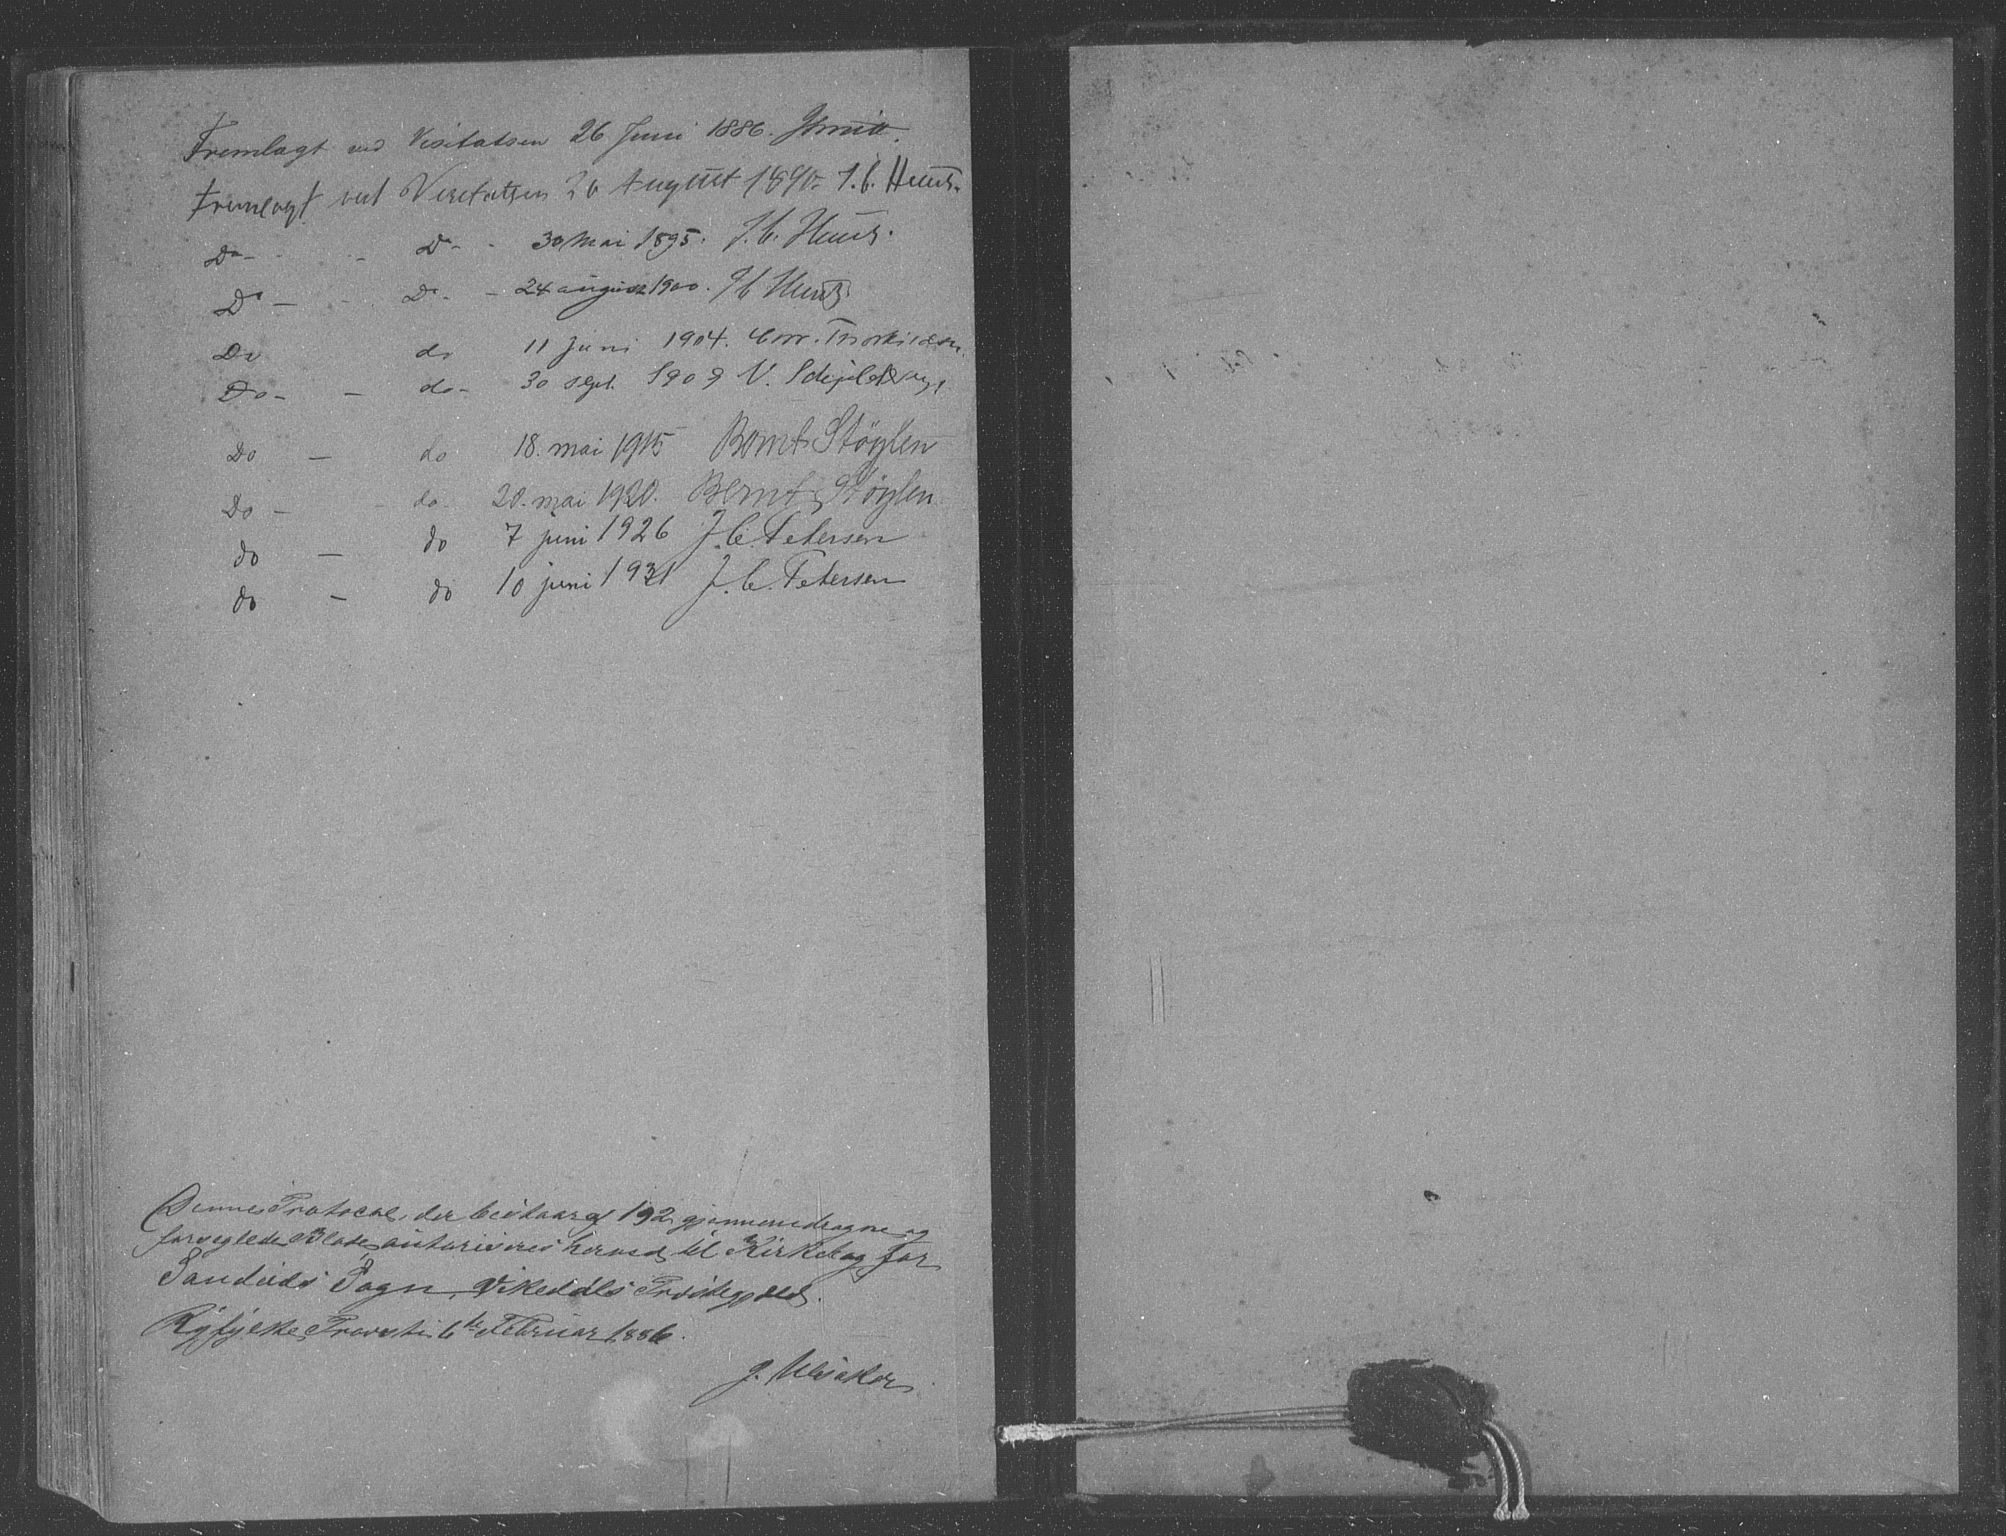 Fremlagt ved Visitatsen 26 Juni 1886.
Fremlagt ved Visitatsen 26 August 1890. J. C. Heuch.
Do - - Do - 30 Mai 1895. J. C. Heuch.
Do - - Do - 24 august 1900. J C Heuch
Do do 11 Juni 1904. Chr. Thorkildsen.
Do - - do - 30 sept. 1909 V. Schjelderup
Do - do 18. mai 1915 Bernt Støylen
Do - - do 20. mai 1920. Bernt Støylen
do - do 7 juni 1926 J. C. Petersen
do - do 10 juni 1931 J. C. Petersen
Denne Protocol, der bestaar af 192 gjennemdragne og
forseglede Blade, autoriseres herved til Kirkebog for
Sandeids Sogn, Vikedals Præstegjæld.
Ryfylke Provsti 6te Februar 1886.